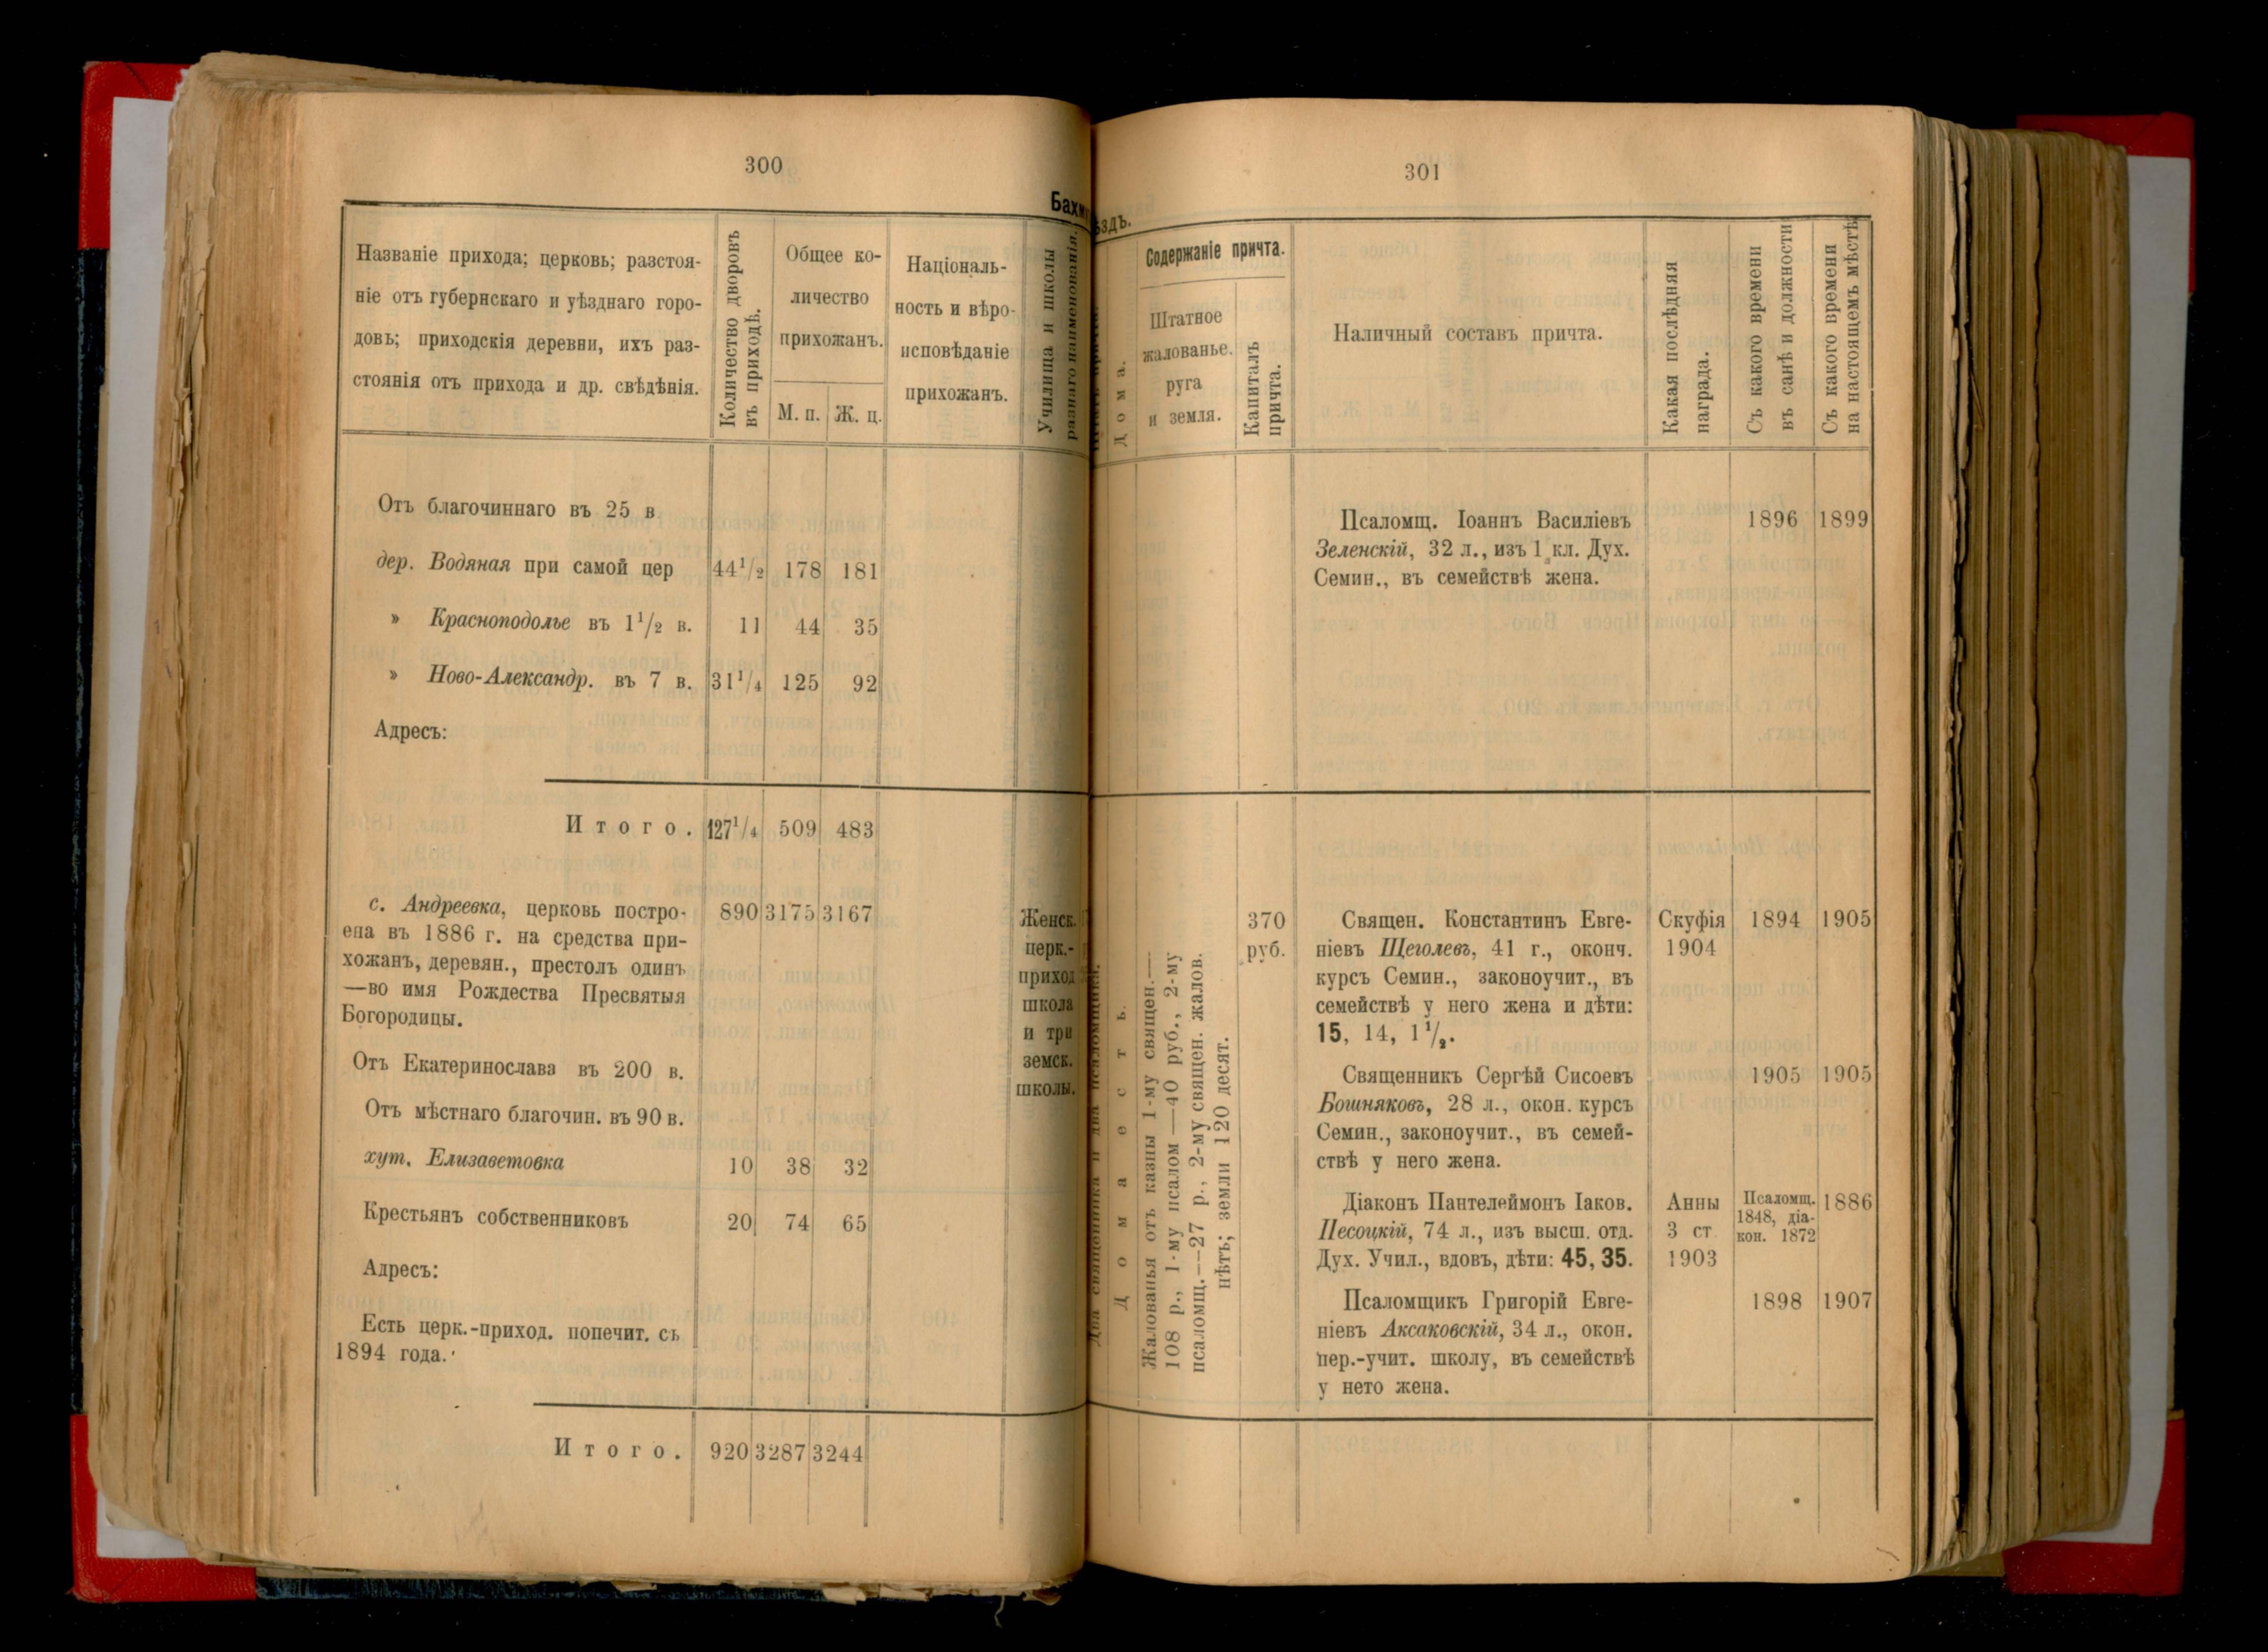 300
Бахм
Названіе прихода; церковь; разстоя-
ніе отъ губернскаго и уѣзднаго горо-
довъ; приходскія деревни, ихъ раз-
стоянія отъ прихода и др. свѣдѣнія.
Количество дворовъ
въ приходѣ.
Общее ко-
личество
прихожанъ.
М. п.
Ж. ц.
Національ-
ность и вѣро-
исповѣданіе
прихожанъ.
Училища и школы
разнаго наименованія.
Отъ благочиннаго въ 25 в
дер. Водяная при самой цер 44¹/₂ 178 181
» Красноподолье въ 1¹/₂ в. 11 44 35
» Ново-Александр. въ 7 в. 31¹/₄ 125 92
Адресъ:
Итого. 127¹/₄ 509 483
с. Андреевка, церковь постро- 890 3175 3167
ена въ 1886 г. на средства при-
хожанъ, деревян., престолъ одинъ
—во имя Рождества Пресвятыя
Богородицы.
Женск.
церк.-
приход
школа
и три
земск.
школы.
Отъ Екатеринослава въ 200 в.
Отъ мѣстнаго благочин. въ 90 в.
хут. Елизаветовка 10 38 32
Крестьянъ собственниковъ 20 74 65
Адресъ:
Есть церк.-приход. попечит. съ
1894 года.
Итого. 920 3287 3244
301
ѣздъ.
Дома.
Содержаніе причта.
Штатное
жалованье.
руга
и земля.
Капиталъ
причта.
Наличный составъ причта.
Какая послѣдняя
награда.
Съ какого времени
въ санѣ и должности
Съ какого времени
на настоящемъ мѣстѣ
Псаломщ. Іоаннъ Василіевъ 1896 1899
Зеленскій, 32 л., изъ 1 кл. Дух.
Семин., въ семействѣ жена.
Два священника и два псаломщика.
Дома есть.
Жалованья отъ казны 1-му священ.—
108 р., 1-му псалом—40 руб., 2-му
псаломщ.—27 р., 2-му священ. жалов.
нѣтъ; земли 120 десят.
370
руб.
Священ. Константинъ Евге- Скуфія 1894 1905
ніевъ Щеголевъ, 41 г., оконч. 1904
курсъ Семин., законоучит., въ
семействѣ у него жена и дѣти:
15, 14, 1¹/₂.
Священникъ Сергѣй Сисоевъ 1905 1905
Бошняковъ, 28 л., окон. курсъ
Семин., законоучит., въ семей-
ствѣ у него жена.
Діаконъ Пантелеймонъ Іаков.
Песоцкій, 74 л., изъ высш. отд.
Дух. Учил., вдовъ, дѣти: 45, 35.
Анны
3 ст
1903
Псаломщ.
1848, діа-
кон. 1872
1886
Псаломщикъ Григорій Евге- 1898 1907
ніевъ Аксаковскій, 34 л., окон.
цер.-учит. школу, въ семействѣ
у нето жена.